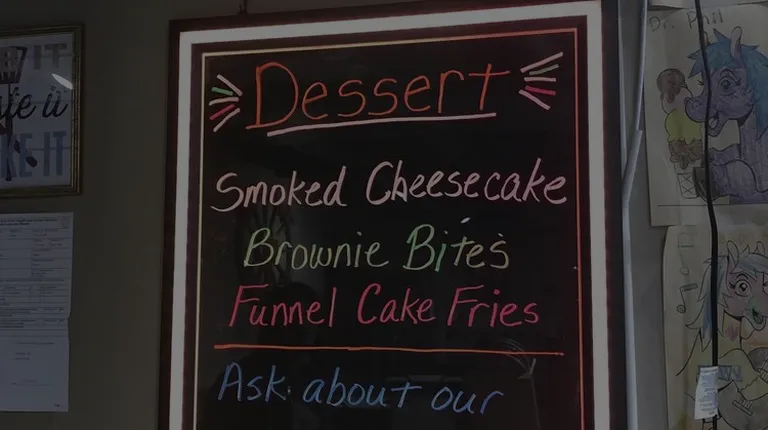 Dessert
Smoked Cheesecake
Brownie Bites
Funnel Cake Fries
Ask about our
Dr. Phil